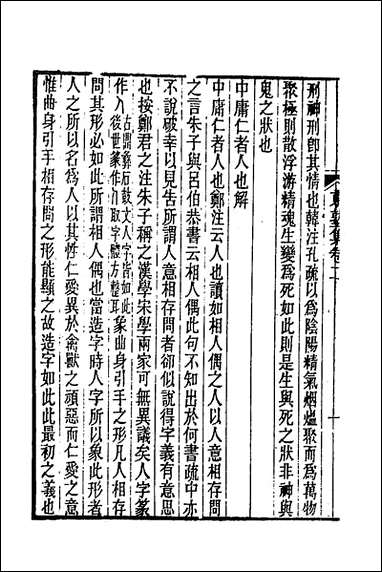 東塾集卷二
十
刑神刑卽其情也韓注孔疏以爲陰陽精氣烟熅聚而爲萬物
聚極則散浮游精魂生變爲死如此則是生與死之狀非神與
鬼之狀也
中庸仁者人也解
中庸仁者人也鄭注云人也讀如相人偶之人以人意相存問
之言朱子與呂伯恭書云相人偶此句不知出於何書疏中亦
不說破幸以見告所謂人意相存問者卻似說得字義有意思
也按鄭君之注朱子稱之漢學宋學兩家可無異議矣人字篆
作古鼎彝石鼓文人字皆如此後世篆作取字體方整耳象曲身引手之形凡人相存
問其形必如此所謂相人偶也當造字時人字所以象此形者
人之所以名爲人以其性仁愛異於禽獸之頑惡而仁愛之意
惟曲身引手相存問之形能顯之故造字如此此最初之義也